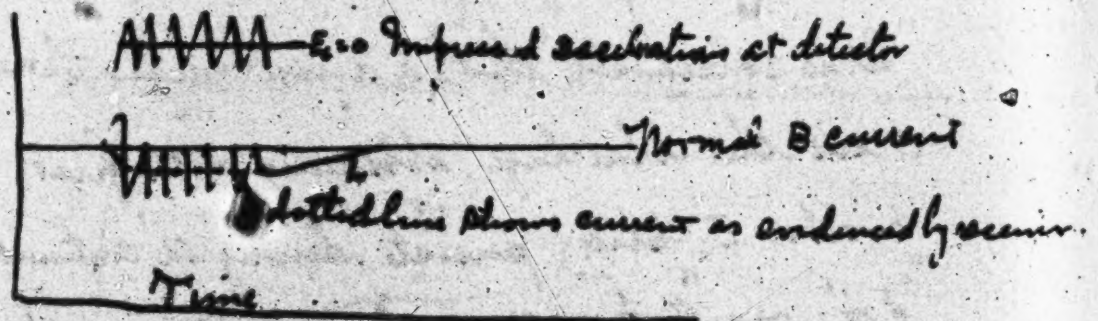 E=0 Impressed oscillations at detector
Normal B current
dotted line shows current as evidenced by receiver.
Time